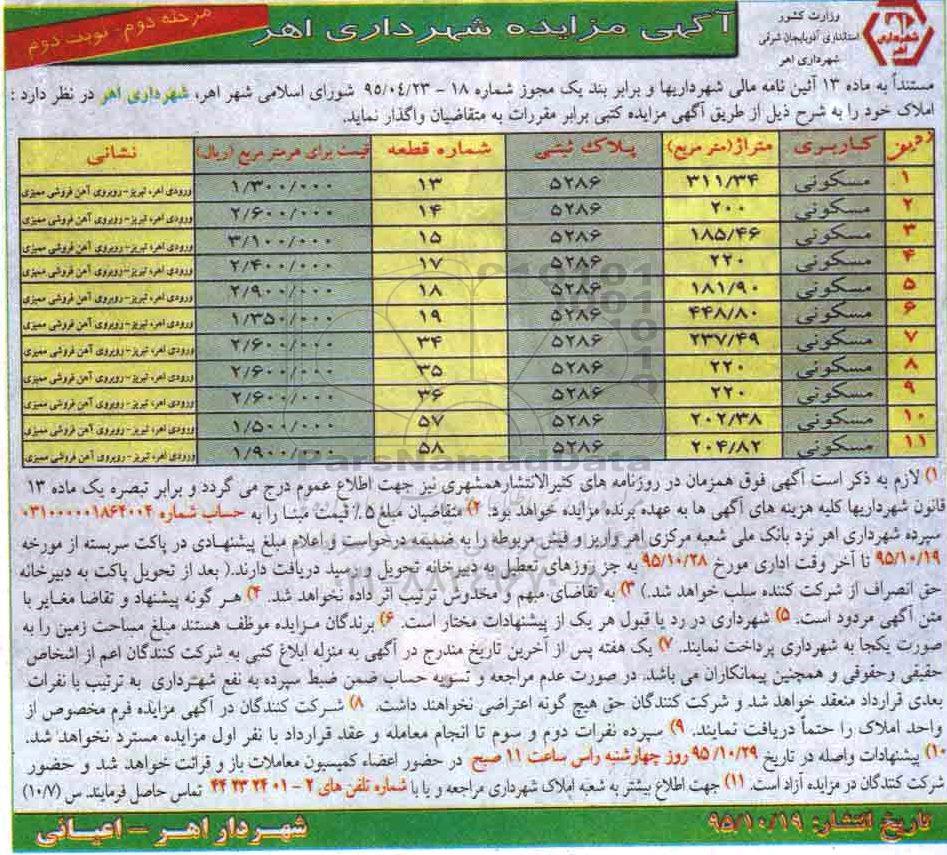 وزارت کشور
استانداری آذربایجان شرقی
شهرداری اهر
شهرداری اهر
آگهی مزایده شهرداری اهر
مرحله دوم- نوبت دوم
مستنداً به ماده ۱۳ آئین نامه مالی شهرداریها و برابر بند یک مجوز شماره ۱۸ – ۹۵/۰۴/۲۳ شورای اسلامی شهر اهر، شهرداری اهر در نظر دارد :
املاک خود را به شرح ذیل از طریق آگهی مزایده کتبی برابر مقررات به متقاضیان واگذار نماید.
ردیف کاربری متراژ(متر مربع) پلاک ثبتی شماره قطعه قیمت برای هرمتر مربع (ریال) نشانی
۱ مسکونی ۳۱۱/۳۴ ۵۲۸۶ ۱۳ ۱/۳۰۰/۰۰۰ ورودی اهر، تبریز- روبروی آهن فروشی ممیزی
۲ مسکونی ۲۰۰ ۵۲۸۶ ۱۴ ۲/۶۰۰/۰۰۰ ورودی اهر، تبریز- روبروی آهن فروشی ممیزی
۳ مسکونی ۱۸۵/۴۶ ۵۲۸۶ ۱۵ ۳/۱۰۰/۰۰۰ ورودی اهر، تبریز- روبروی آهن فروشی ممیزی
۴ مسکونی ۲۲۰ ۵۲۸۶ ۱۷ ۲/۴۰۰/۰۰۰ ورودی اهر، تبریز- روبروی آهن فروشی ممیزی
۵ مسکونی ۱۸۱/۹۰ ۵۲۸۶ ۱۸ ۲/۹۰۰/۰۰۰ ورودی اهر، تبریز- روبروی آهن فروشی ممیزی
۶ مسکونی ۴۴۸/۸۰ ۵۲۸۶ ۱۹ ۱/۳۵۰/۰۰۰ ورودی اهر، تبریز- روبروی آهن فروشی ممیزی
۷ مسکونی ۲۳۷/۴۹ ۵۲۸۶ ۳۴ ۲/۶۰۰/۰۰۰ ورودی اهر، تبریز- روبروی آهن فروشی ممیزی
۸ مسکونی ۲۲۰ ۵۲۸۶ ۳۵ ۲/۶۰۰/۰۰۰ ورودی اهر، تبریز- روبروی آهن فروشی ممیزی
۹ مسکونی ۲۲۰ ۵۲۸۶ ۳۶ ۲/۶۰۰/۰۰۰ ورودی اهر، تبریز- روبروی آهن فروشی ممیزی
۱۰ مسکونی ۲۰۲/۳۸ ۵۲۸۶ ۵۷ ۱/۵۰۰/۰۰۰ ورودی اهر، تبریز- روبروی آهن فروشی ممیزی
۱۱ مسکونی ۲۰۴/۸۲ ۵۲۸۶ ۵۸ ۱/۹۰۰/۰۰۰ ورودی اهر، تبریز- روبروی آهن فروشی ممیزی
ParsNamadData
۱) لازم به ذکر است آگهی فوق همزمان در روزنامه های کثیرالانتشارهمشهری نیز جهت اطلاع عموم درج می گردد و برابر تبصره یک ماده ۱۳
قانون شهرداریها کلیه هزینه های آگهی ها به عهده برنده مزایده خواهد بود. ۲) متقاضیان مبلغ ۵٪ قیمت مبنا را به حساب شماره ۰۳۱۰۰۰۰۰۱۸۶۴۰۰۴
سپرده شهرداری اهر نزد بانک ملی شعبه مرکزی اهر واریز و فیش مربوطه را به ضمیمه درخواست و اعلام مبلغ پیشنهادی در پاکت سربسته از مورخه
۹۵/۱۰/۱۹ تا آخر وقت اداری مورخ ۹۵/۱۰/۲۸ به جز روزهای تعطیل به دبیرخانه تحویل و رسید دریافت دارند.( بعد از تحویل پاکت به دبیرخانه
حق انصراف از شرکت کننده سلب خواهد شد.) ۳) به تقاضای مبهم و مخدوش ترتیب اثر داده نخواهد شد. ۴) هر گونه پیشنهاد و تقاضا مغایر با
متن آگهی مردود است. ۵) شهرداری در رد یا قبول هر یک از پیشنهادات مختار است. ۶) برندگان مزایده موظف هستند مبلغ مساحت زمین را به
صورت یکجا به شهرداری پرداخت نمایند. ۷) یک هفته پس از آخرین تاریخ مندرج در آگهی به منزله ابلاغ کتبی به شرکت کنندگان اعم از اشخاص
حقیقی وحقوقی و همچنین پیمانکاران می باشد. در صورت عدم مراجعه و تسویه حساب ضمن ضبط سپرده به نفع شهرداری به ترتیب با نفرات
بعدی قرارداد منعقد خواهد شد و شرکت کنندگان حق هیچ گونه اعتراضی نخواهند داشت. ۸) شرکت کنندگان در آگهی مزایده فرم مخصوص از
واحد املاک را حتماً دریافت نمایند. ۹) سپرده نفرات دوم و سوم تا انجام معامله و عقد قرارداد با نفر اول مزایده مسترد نخواهد شد.
۱۰) پیشنهادات واصله در تاریخ ۹۵/۱۰/۲۹ روز چهارشنبه راس ساعت ۱۱ صبح در حضور اعضاء کمیسیون معاملات باز و قرائت خواهد شد و حضور
شرکت کنندگان در مزایده آزاد است. ۱۱) جهت اطلاع بیشتر به شعبه املاک شهرداری مراجعه و یا با شماره تلفن های ۲ – ۴۴۲۳۲۴۰۱ تماس حاصل فرمایند. س (۱۰/۷)
تاریخ انتشار: ۹۵/۱۰/۱۹
شهردار اهر – اعیانی